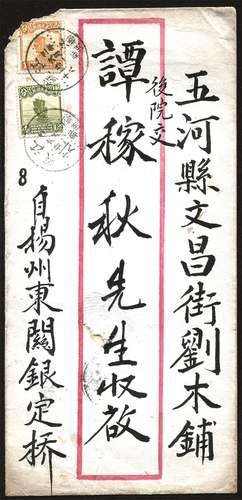 五河縣文昌街劉木鋪
後院交
譚稼秋先生收啟
自揚州東關銀定桥
8